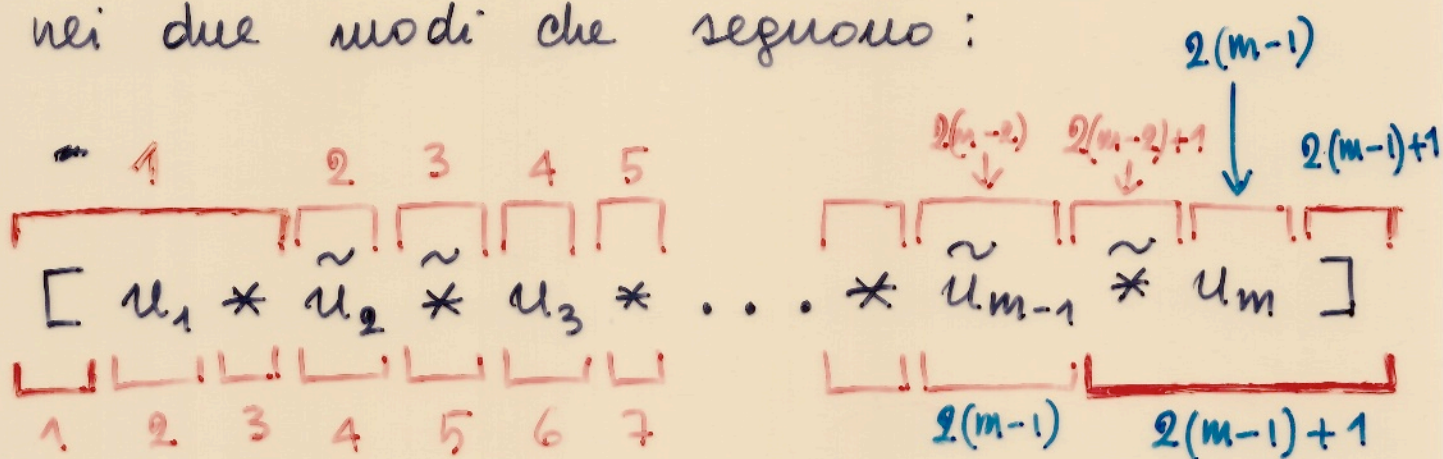 nei due modi che seguono :
2(m-1)
1 2 3 4 5 2(m-2) 2(m-2)+1 2(m-1)+1
[ u₁ * ũ₂ *̃ u₃ * . . . * ũₘ₋₁ *̃ uₘ ]
1 2 3 4 5 6 7 2(m-1) 2(m-1)+1